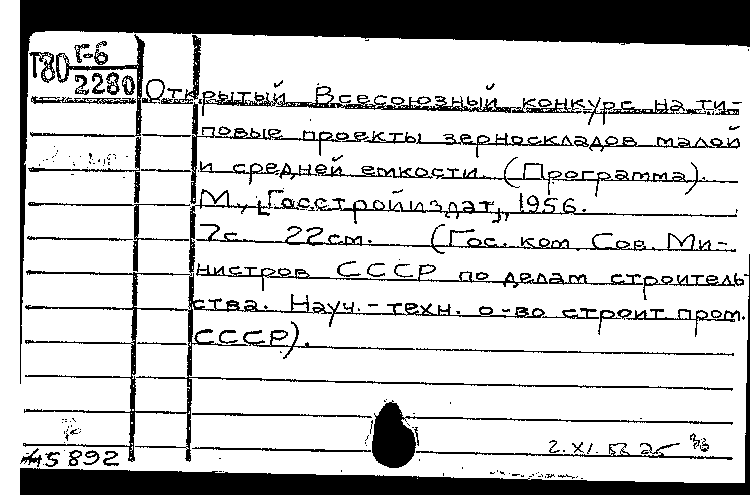 Т80 Г-6
2280
Открытый Всесоюзный конкурс на ти-
повые проекты зерноскладов малой
и средней емкости. (Программа).
М., [Госстройиздат], 1956.
7с. 22см. (Гос. ком. Сов. Ми-
нистров СССР по делам строитель-
ства. Науч.-техн. о-во строит пром.
СССР).
5892
2.XI.